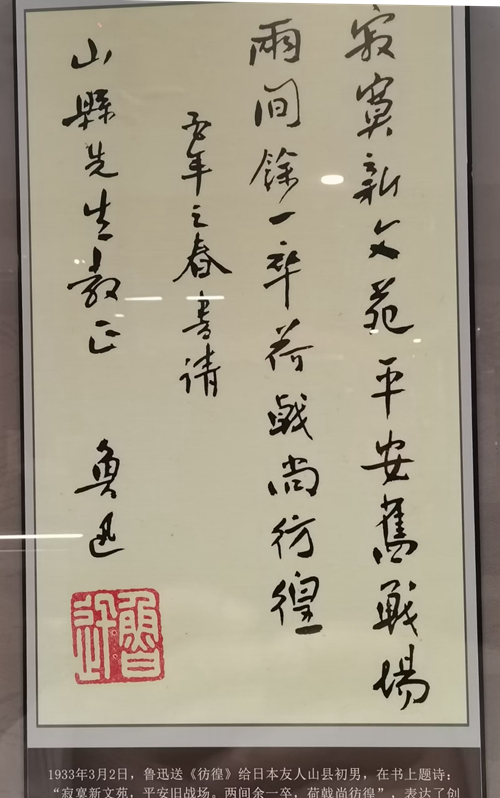 寂寞新文苑平安舊戰場
兩間餘一卒荷戟尚彷徨
酉年之春書請
山縣先生教正 魯迅
魯迅
1933年3月2日，鲁迅送《彷徨》给日本友人山县初男，在书上题诗：
“寂寞新文苑，平安旧战场。两间余一卒，荷戟尚彷徨”，表达了创